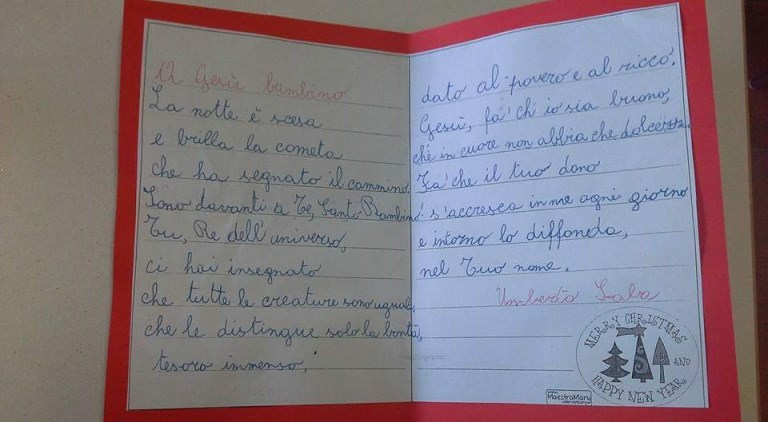 A Gesù bambino
La notte è scesa
e brilla la cometa
che ha segnato il cammino.
Sono davanti a Te, Santo Bambino!
Tu, Re dell'universo,
ci hai insegnato
che tutte le creature sono uguali,
che le distingue solo la bontà,
tesoro immenso,
dato al povero e al ricco.
Gesù, fa' ch'io sia buono,
che in cuore non abbia che dolcezza.
Fa' che il tuo dono
s'accresca in me ogni giorno
e intorno lo diffonda,
nel Tuo nome.
Umberto Saba
MERRY CHRISTMAS
AND
HAPPY NEW YEAR
MaestraMary